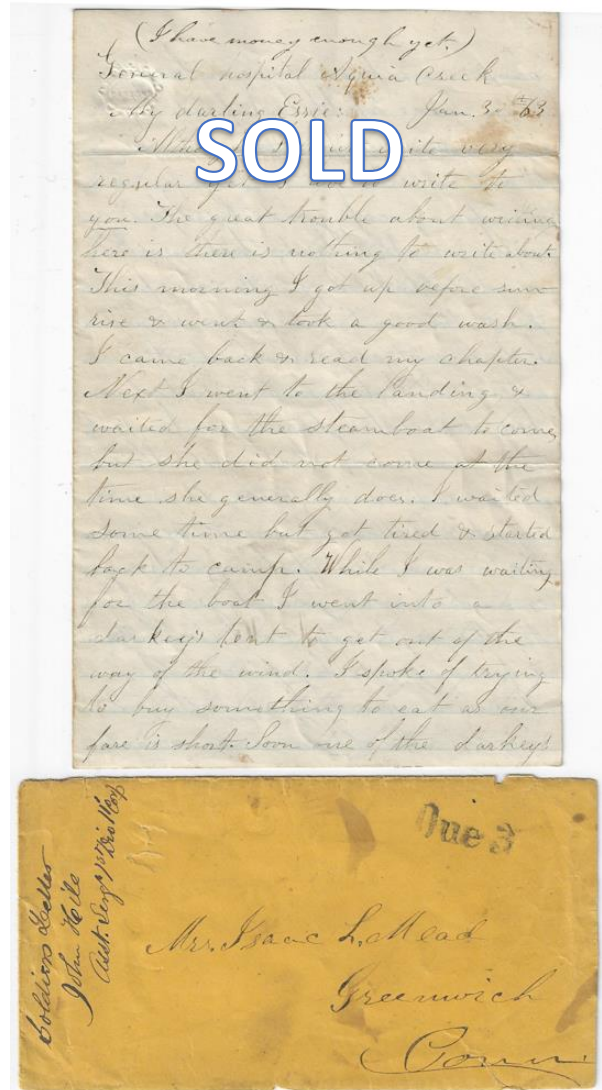 (I have money enough yet.)
General hospital Aquia Creek
My darling Essie: Jan. 30th 63
SOLD
write very
regular yet I do write to
you. The great trouble about writing
here is there is nothing to write about.
This morning I got up before sun
rise & went & took a good wash.
I came back & read my chapter.
Next I went to the landing &
waited for the steamboat to come,
but she did not come at the
time she generally does. I waited
some time but got tired & started
back to camp. While I was waiting
for the boat I went into a
darkey's tent to get out of the
way of the wind. I spoke of trying
to buy something to eat as our
fare is short. Soon one of the darkey's
Due 3
Soldiers Letter
John
Asst. Surgn 1st Div 1st Corp
Mrs. Isaac L. Mead
Greenwich
Conn.